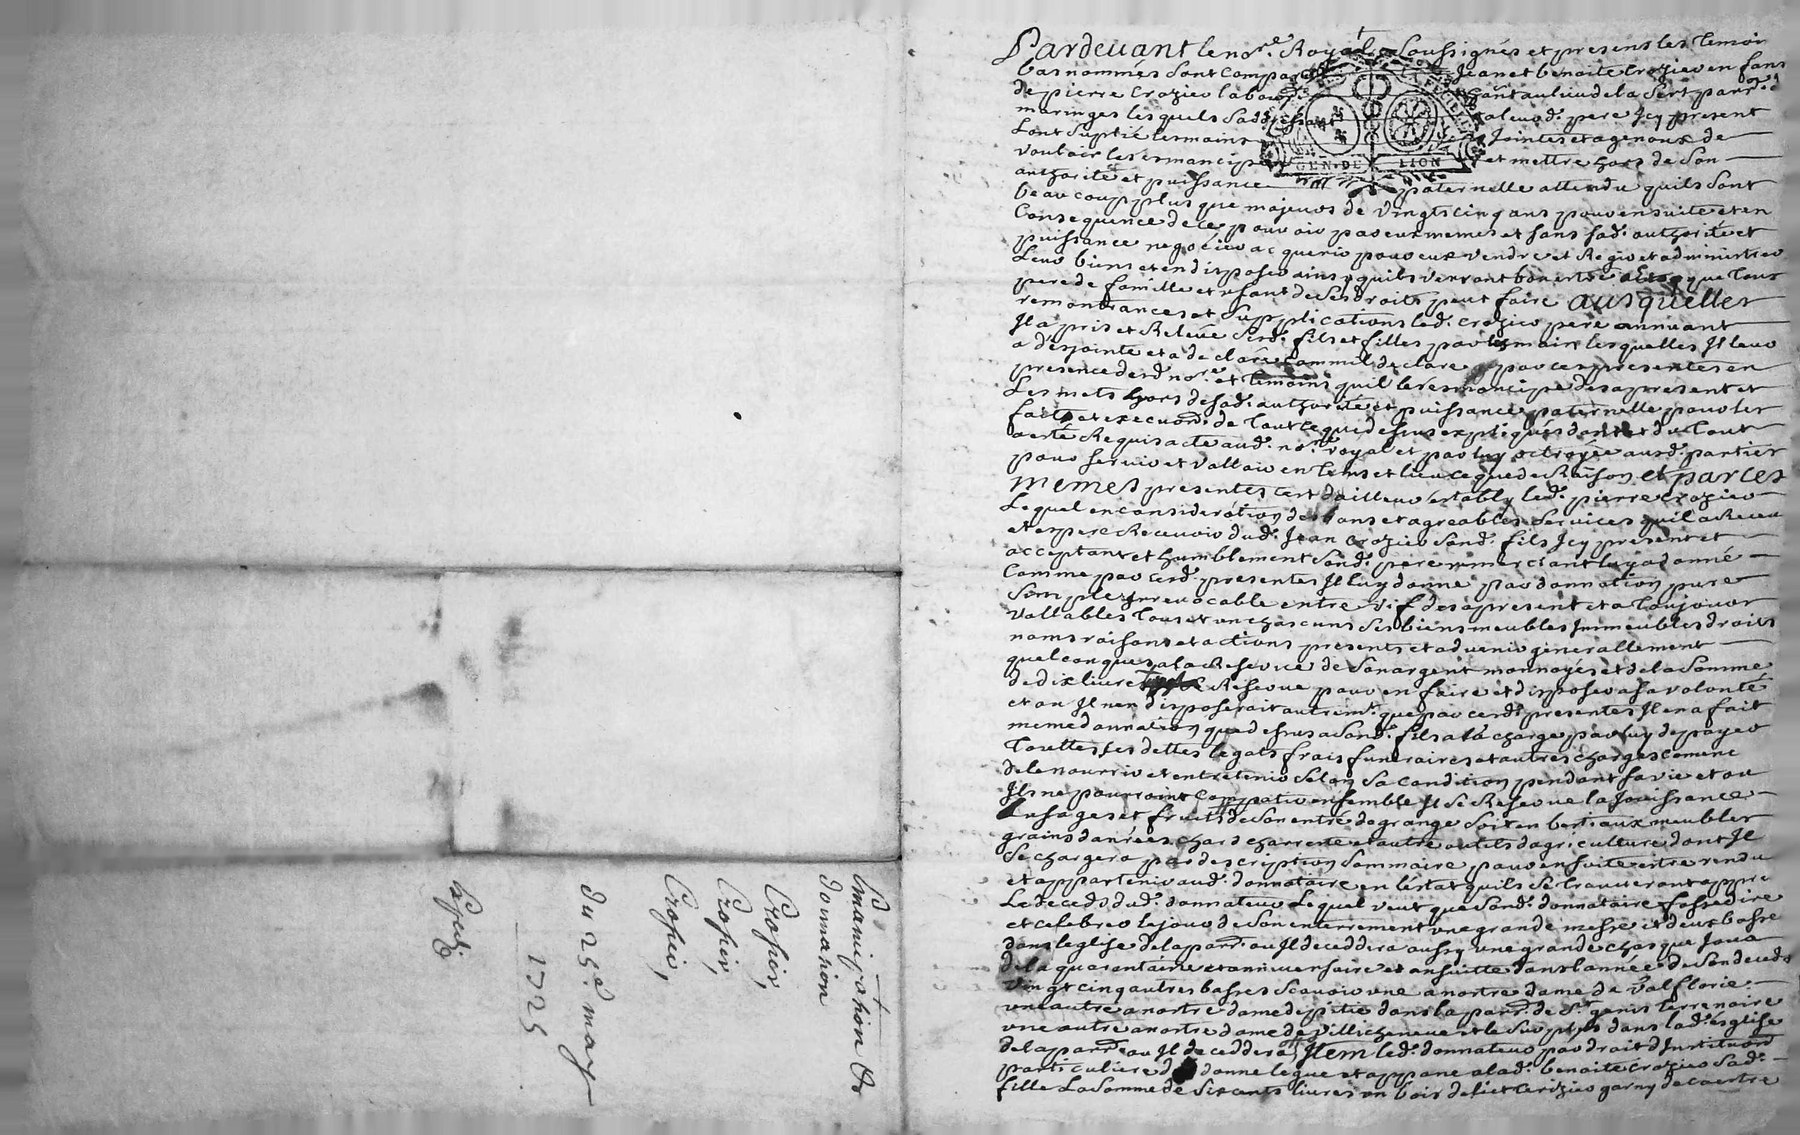 Emancipation &
donnation
Crozier,
Crozier,
Crozier,
du 25e. may
1725
GEN. DE LION
Pardevant le nore. Royal Soussignés et presens les temoin
bas nommés sont comparus Jean et benoite Crozier enfans
de pierre Crozier labour. au lieu de la parr. de
maringes lesquels s'adressant aud. pere Icy present
L'ont suplié les mains Jointes et agenoux de
vouloir les Esmanciper et mettre hors de son
authorité et puissance paternelle attendu quils sont
beaucoup plus que majeurs de vingt cinq ans pour ensuite et en
Consequence de ce pouvoir par eux memes et sans sad. authorité et
puissance negotier acquerir pour eux vendre et Regir et administrer
Leur biens et en disposer ainsy quils verront bon estre que tous
pere de famille et usant de ses droits peut faire ausquelles
remontrances et Supplications led. Crozier pere annuant
Il a pris et Relevé sesd. fils et filles par les mains lesquelles Il leur
a desjointe et a declaré comme Il declare par ces presentes en
presence dud. nore. et temoins quil les esmancipe des a present et
Les mets hors de sad. authorité et puissance paternelle pour les
faits et execuon. de tout ce qui dessus expliqués dont et du tout
a esté Requis acte aud. nore. royal et par luy octroyée ausd. parties
pour servir et valloir en tems et lieu ce que de Raison, et par ces
memes presentes c'est dailleur estably led. pierre Crozier
Lequel en consideration des bons et agreables services quil a Receu
et espere Recevoir dud. Jean Crozier sond. fils Icy present et
acceptant et humblement sond. pere remerciant luy a donné
Comme par cesd. presentes Il luy donne par donnation pure
Simple Irrevocable entre vif des a present et a toujours
vallables tous et un chascuns ses biens meubles Immeubles droits
noms raisons et actions presents et advenir generallement
quelconques a la Reserve de son argent monnoyés et de la somme
de dix livre Reserve pour en faire et disposer a sa volonté
et ou Il n'en disposerait autremt. que par cesd. presentes Il en a fait
meme donnation que dessus a sond. fils a la charge par luy de payer
touttes ses dettes legats frais funeraires et autres charges comme
de le nourrir et entretenir selon sa Condition pendant sa vie et ou
Ils ne pourroint Compatir ensemble Il se Reserve la Jouissance
usages et fruits de son entré de grange soit en bestiaux meubles
grains danrées chars charrette et autre outils dagriculture dont Il
se chargera par description sommaire pour ensuite estre rendu
et appartenir aud. donnataire en lestat quils se trouveront appre
Le deceds dud. donnateur Lequel veut que sond. donnataire fasse dire
et celebrer le jour de son enterrement une grande messe et deux basse
dans leglise de la parr. ou Il deceddera aussy une grande chasque Jour
de la quarentaine et anniversaire et ensuitte dans l'année de son deceds
vingt cinq autres basses scavoir une a nostre dame de Valflorie
une autre a nostre dame de pitié dans la parr. de St genis terrenoire
une autre a nostre dame de villicheneve et le surplus dans lad. esglise
de la parr. ou Il deceddera, Item led. donnateur par droit dInstituon
particuliere donne legue et appane a lad. benoite Crozier sad.
fille La somme de six cents livres un bois de lict cerizier garny de couertre